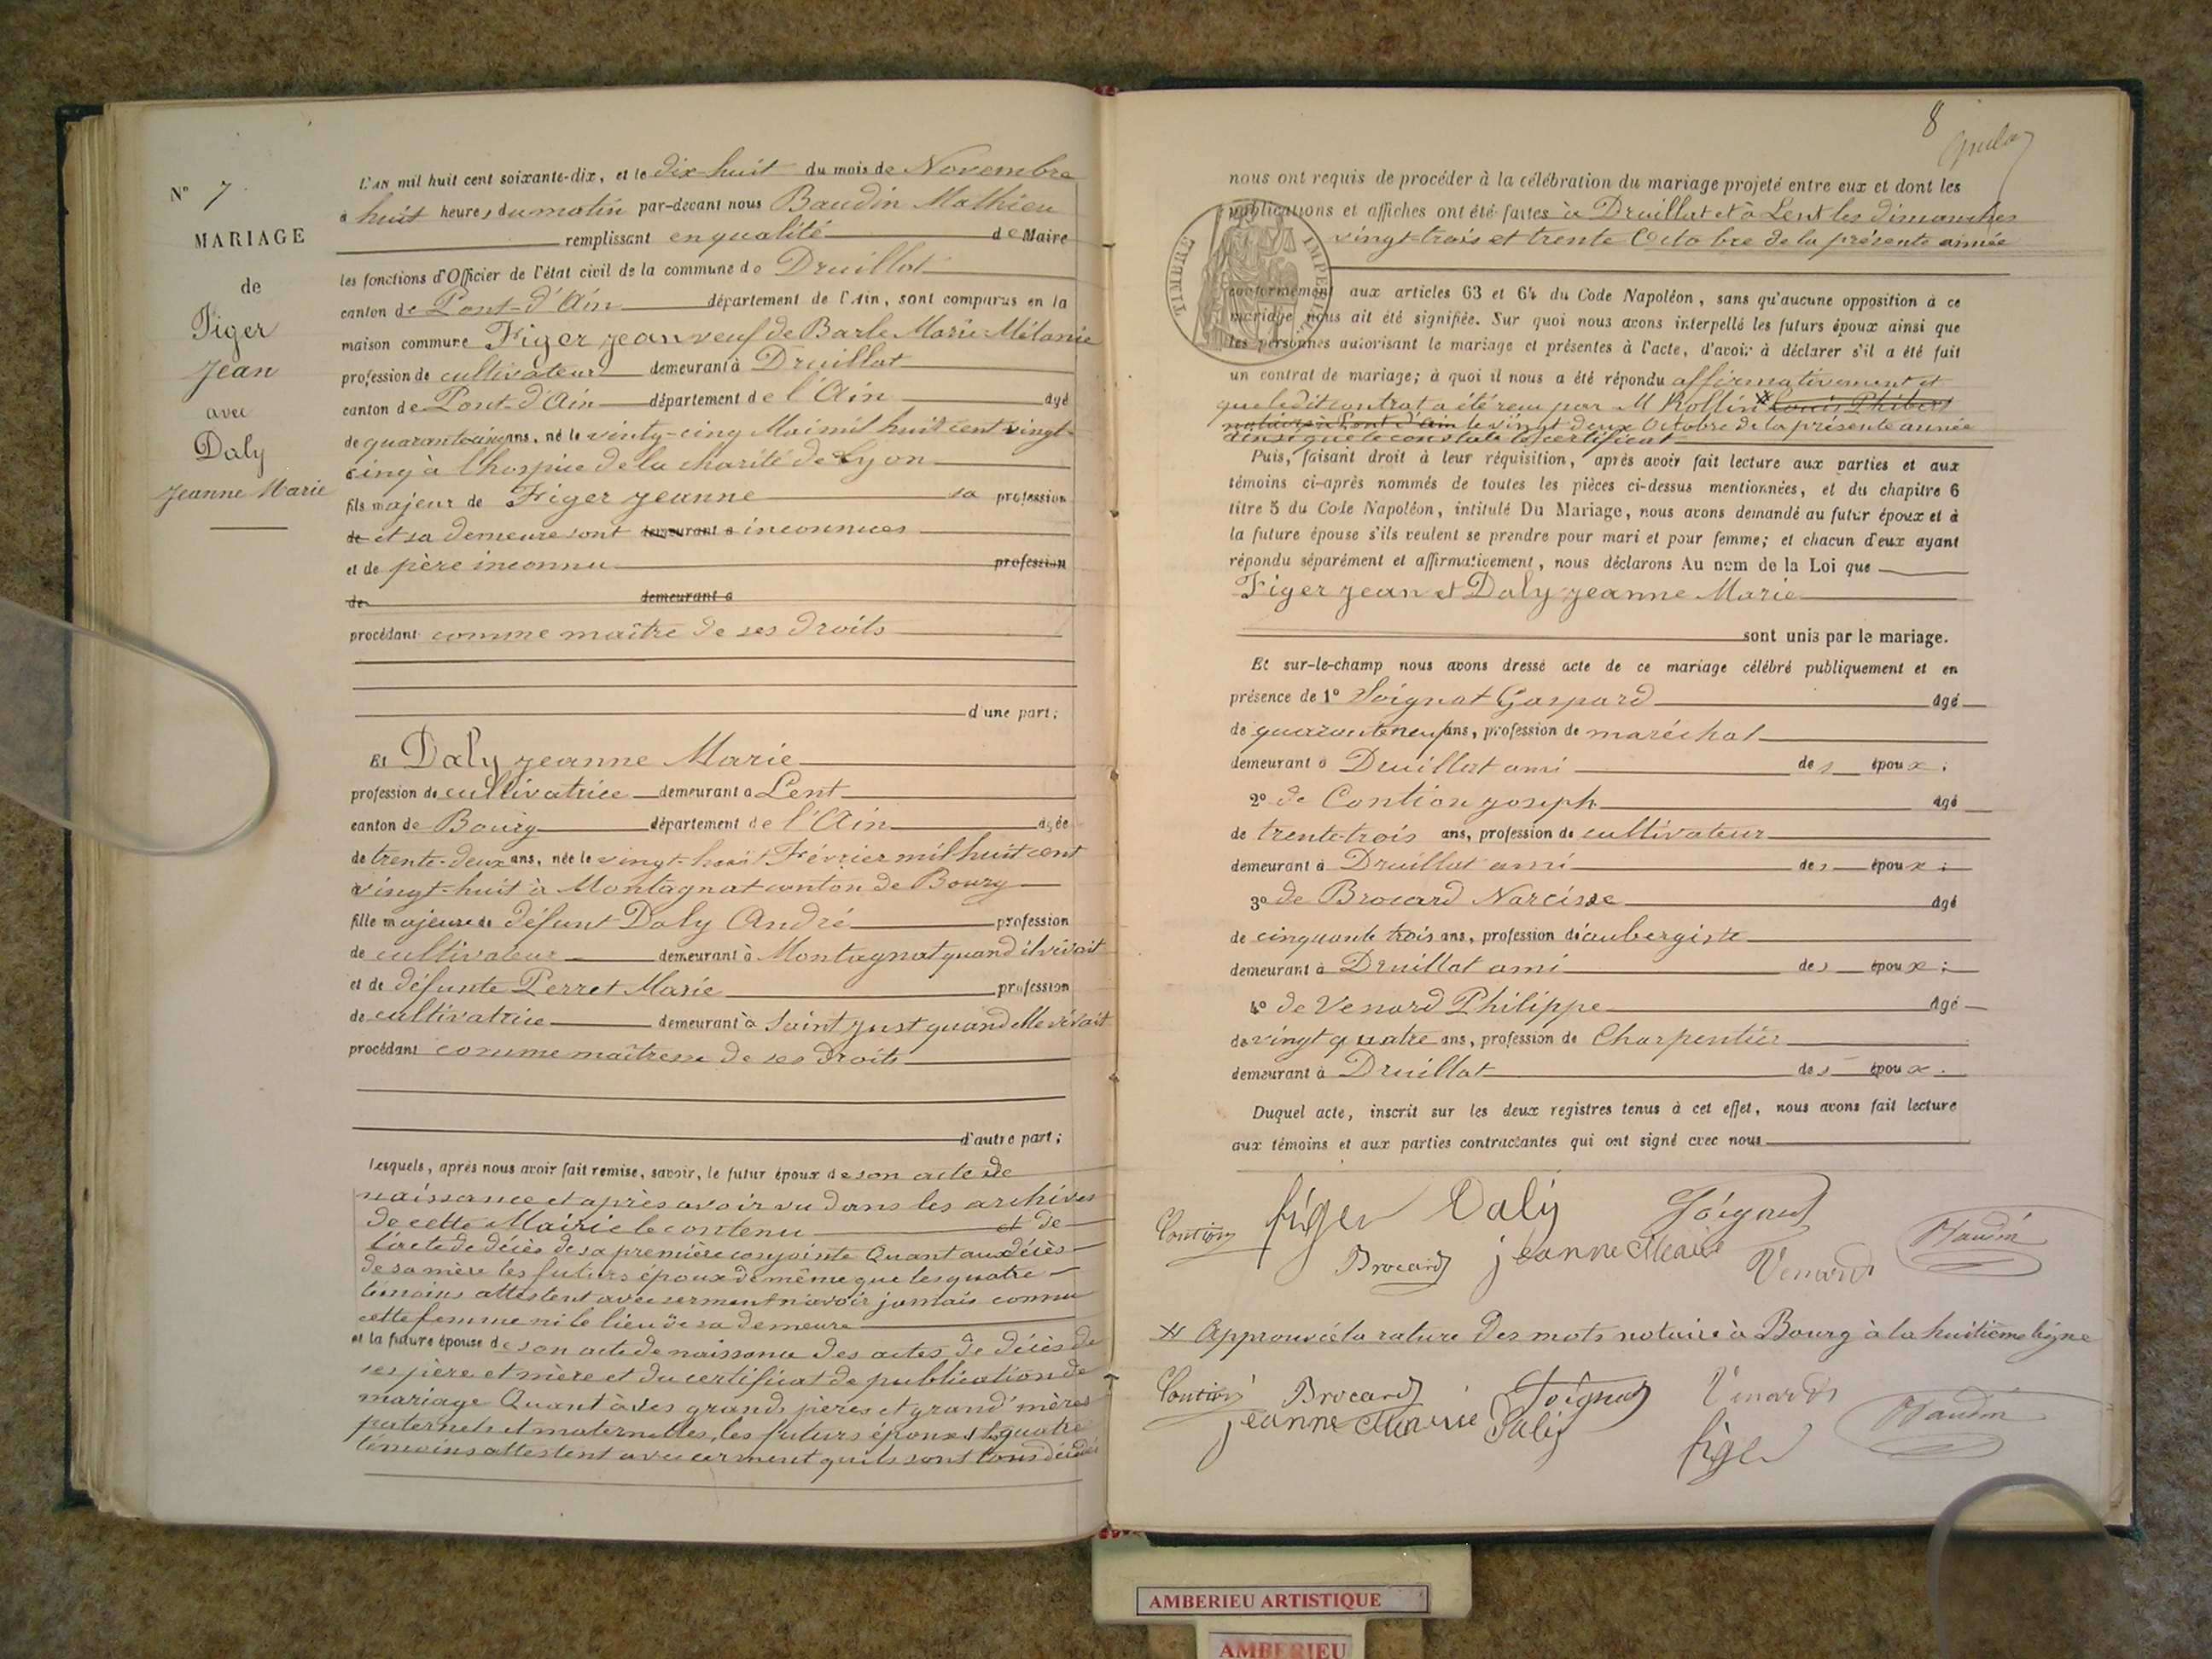 N° 7
MARIAGE
de
Figer
Jean
avec
Daly
Jeanne Marie
L'AN mil huit cent soixante-dix, et le dix-huit du mois de Novembre
à huit heures du matin par-devant nous Baudin Mathieu
remplissant en qualité de Maire
les fonctions d'Officier de l'état civil de la commune de Druillat
canton de Pont-d'Ain département de l'Ain, sont comparus en la
maison commune Figer Jean veuf de Barbe Marie Mélanie
profession de cultivateur demeurant à Druillat
canton de Pont-d'Ain département de l'Ain âgé
de quarante cinq ans, né le vingt-cinq Mai mil huit cent vingt-
cinq à l'hospice de la charité de Lyon
fils majeur de Figer Jeanne sa profession
de et sa demeure sont demeurant à inconnues
et de père inconnu profession
de demeurant à
procédant comme maître de ses droits
d'une part;
Et Daly Jeanne Marie
profession de cultivatrice demeurant à Lent
canton de Bourg département de l'Ain âgée
de trente-deux ans, née le vingt-huit Février mil huit cent
vingt-huit à Montagnat canton de Bourg
fille majeure de défunt Daly André profession
de cultivateur demeurant à Montagnat quand il vivait
et de défunte Perret Marie profession
de cultivatrice demeurant à Saint Just quand elle vivait
procédant comme maîtresse de ses droits
d'autre part;
Lesquels, après nous avoir fait remise, savoir, le futur époux de son acte de
naissance et après avoir vu dans les archives
de cette Mairie le contenu et de
l'acte de décès de sa première conjointe Quant au décès
de sa mère les futurs époux de même que les quatre
témoins attestent avec serment n'avoir jamais connu
cette femme ni le lieu de sa demeure
et la future épouse de son acte de naissance des actes de décès de
ses père et mère et du certificat de publication de
mariage Quant à ses grands pères et grand'mères
paternels et maternelles, les futurs époux et les quatre
témoins attestent avec serment qu'ils sont tous décédés
8
nous ont requis de procéder à la célébration du mariage projeté entre eux et dont les
publications et affiches ont été faites à Druillat et à Lent les dimanches
vingt-trois et trente Octobre de la présente année
TIMBRE IMPERIAL
conformément aux articles 63 et 64 du Code Napoléon, sans qu'aucune opposition à ce
mariage nous ait été signifiée. Sur quoi nous avons interpellé les futurs époux ainsi que
les personnes autorisant le mariage et présentes à l'acte, d'avoir à déclarer s'il a été fait
un contrat de mariage; à quoi il nous a été répondu affirmativement et
que ledit contrat a été reçu par M Rollin Louis Philibert
notaire à Pont d'Ain le vingt deux Octobre de la présente année
ainsi que le constate le certificat
Puis, faisant droit à leur réquisition, après avoir fait lecture aux parties et aux
témoins ci-après nommés de toutes les pièces ci-dessus mentionnées, et du chapitre 6
titre 5 du Code Napoléon, intitulé Du Mariage, nous avons demandé au futur époux et à
la future épouse s'ils veulent se prendre pour mari et pour femme; et chacun d'eux ayant
répondu séparément et affirmativement, nous déclarons Au nom de la Loi que
Figer Jean et Daly Jeanne Marie
sont unis par le mariage.
Et sur-le-champ nous avons dressé acte de ce mariage célébré publiquement et en
présence de 1° Soignat Gaspard âgé
de quarante neuf ans, profession de maréchal
demeurant à Druillat ami des époux;
2° de Contion Joseph âgé
de trente-trois ans, profession de cultivateur
demeurant à Druillat ami des époux;
3° de Brocard Narcisse âgé
de cinquante trois ans, profession d'aubergiste
demeurant à Druillat ami des époux;
4° de Venard Philippe âgé
de vingt quatre ans, profession de Charpentier
demeurant à Druillat des époux.
Duquel acte, inscrit sur les deux registres tenus à cet effet, nous avons fait lecture
aux témoins et aux parties contractantes qui ont signé avec nous
Contion figer Daly Soignat
Brocard jeanne Marie Venard Baudin
Approuvée la rature des mots notaire à Bourg à la huitième ligne
Contion Brocard Soignat Venard
jeanne Marie Daly figer Baudin
AMBERIEU ARTISTIQUE
AMBERIEU